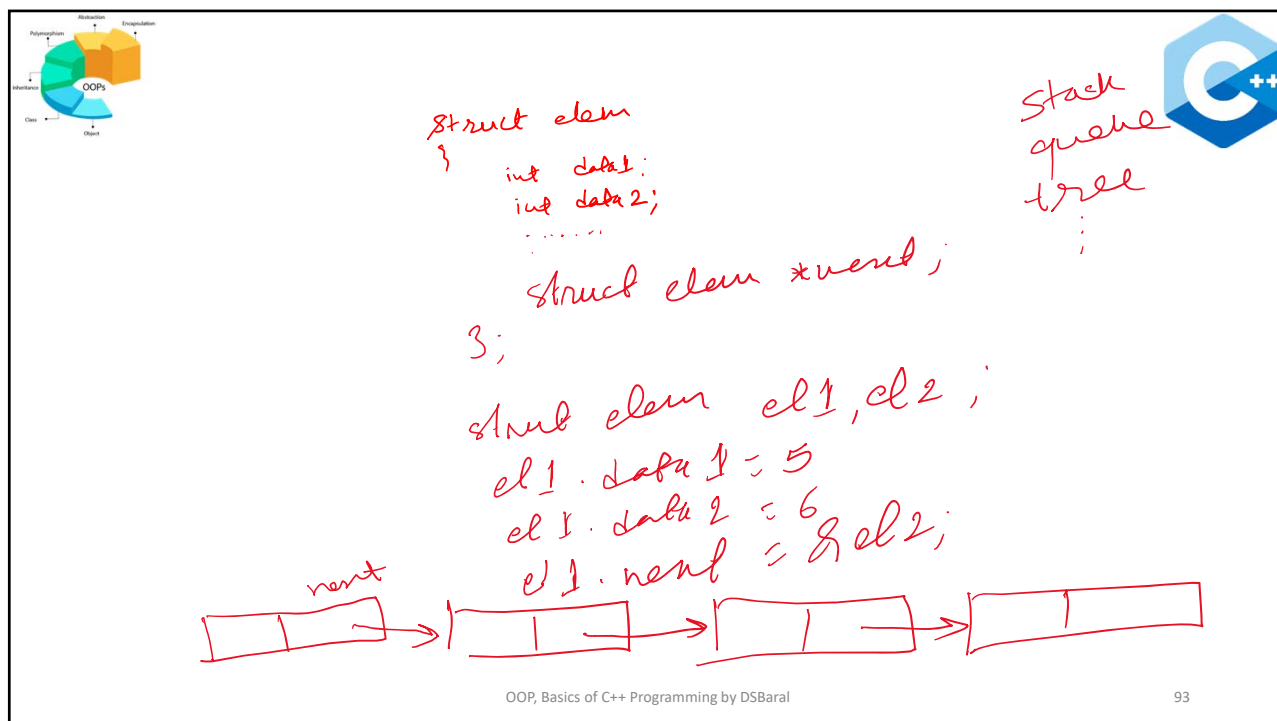 Abstraction
Polymorphism
Encapsulation
Inheritance
OOPs
Class
Object
C++
struct elem
{
int data1;
int data2;
.......
struct elem *next;
};
struct elem el1, el2;
el1.data1 = 5
el1.data2 = 6
el1.next = &el2;
next
stack
queue
tree
:
OOP, Basics of C++ Programming by DSBaral
93